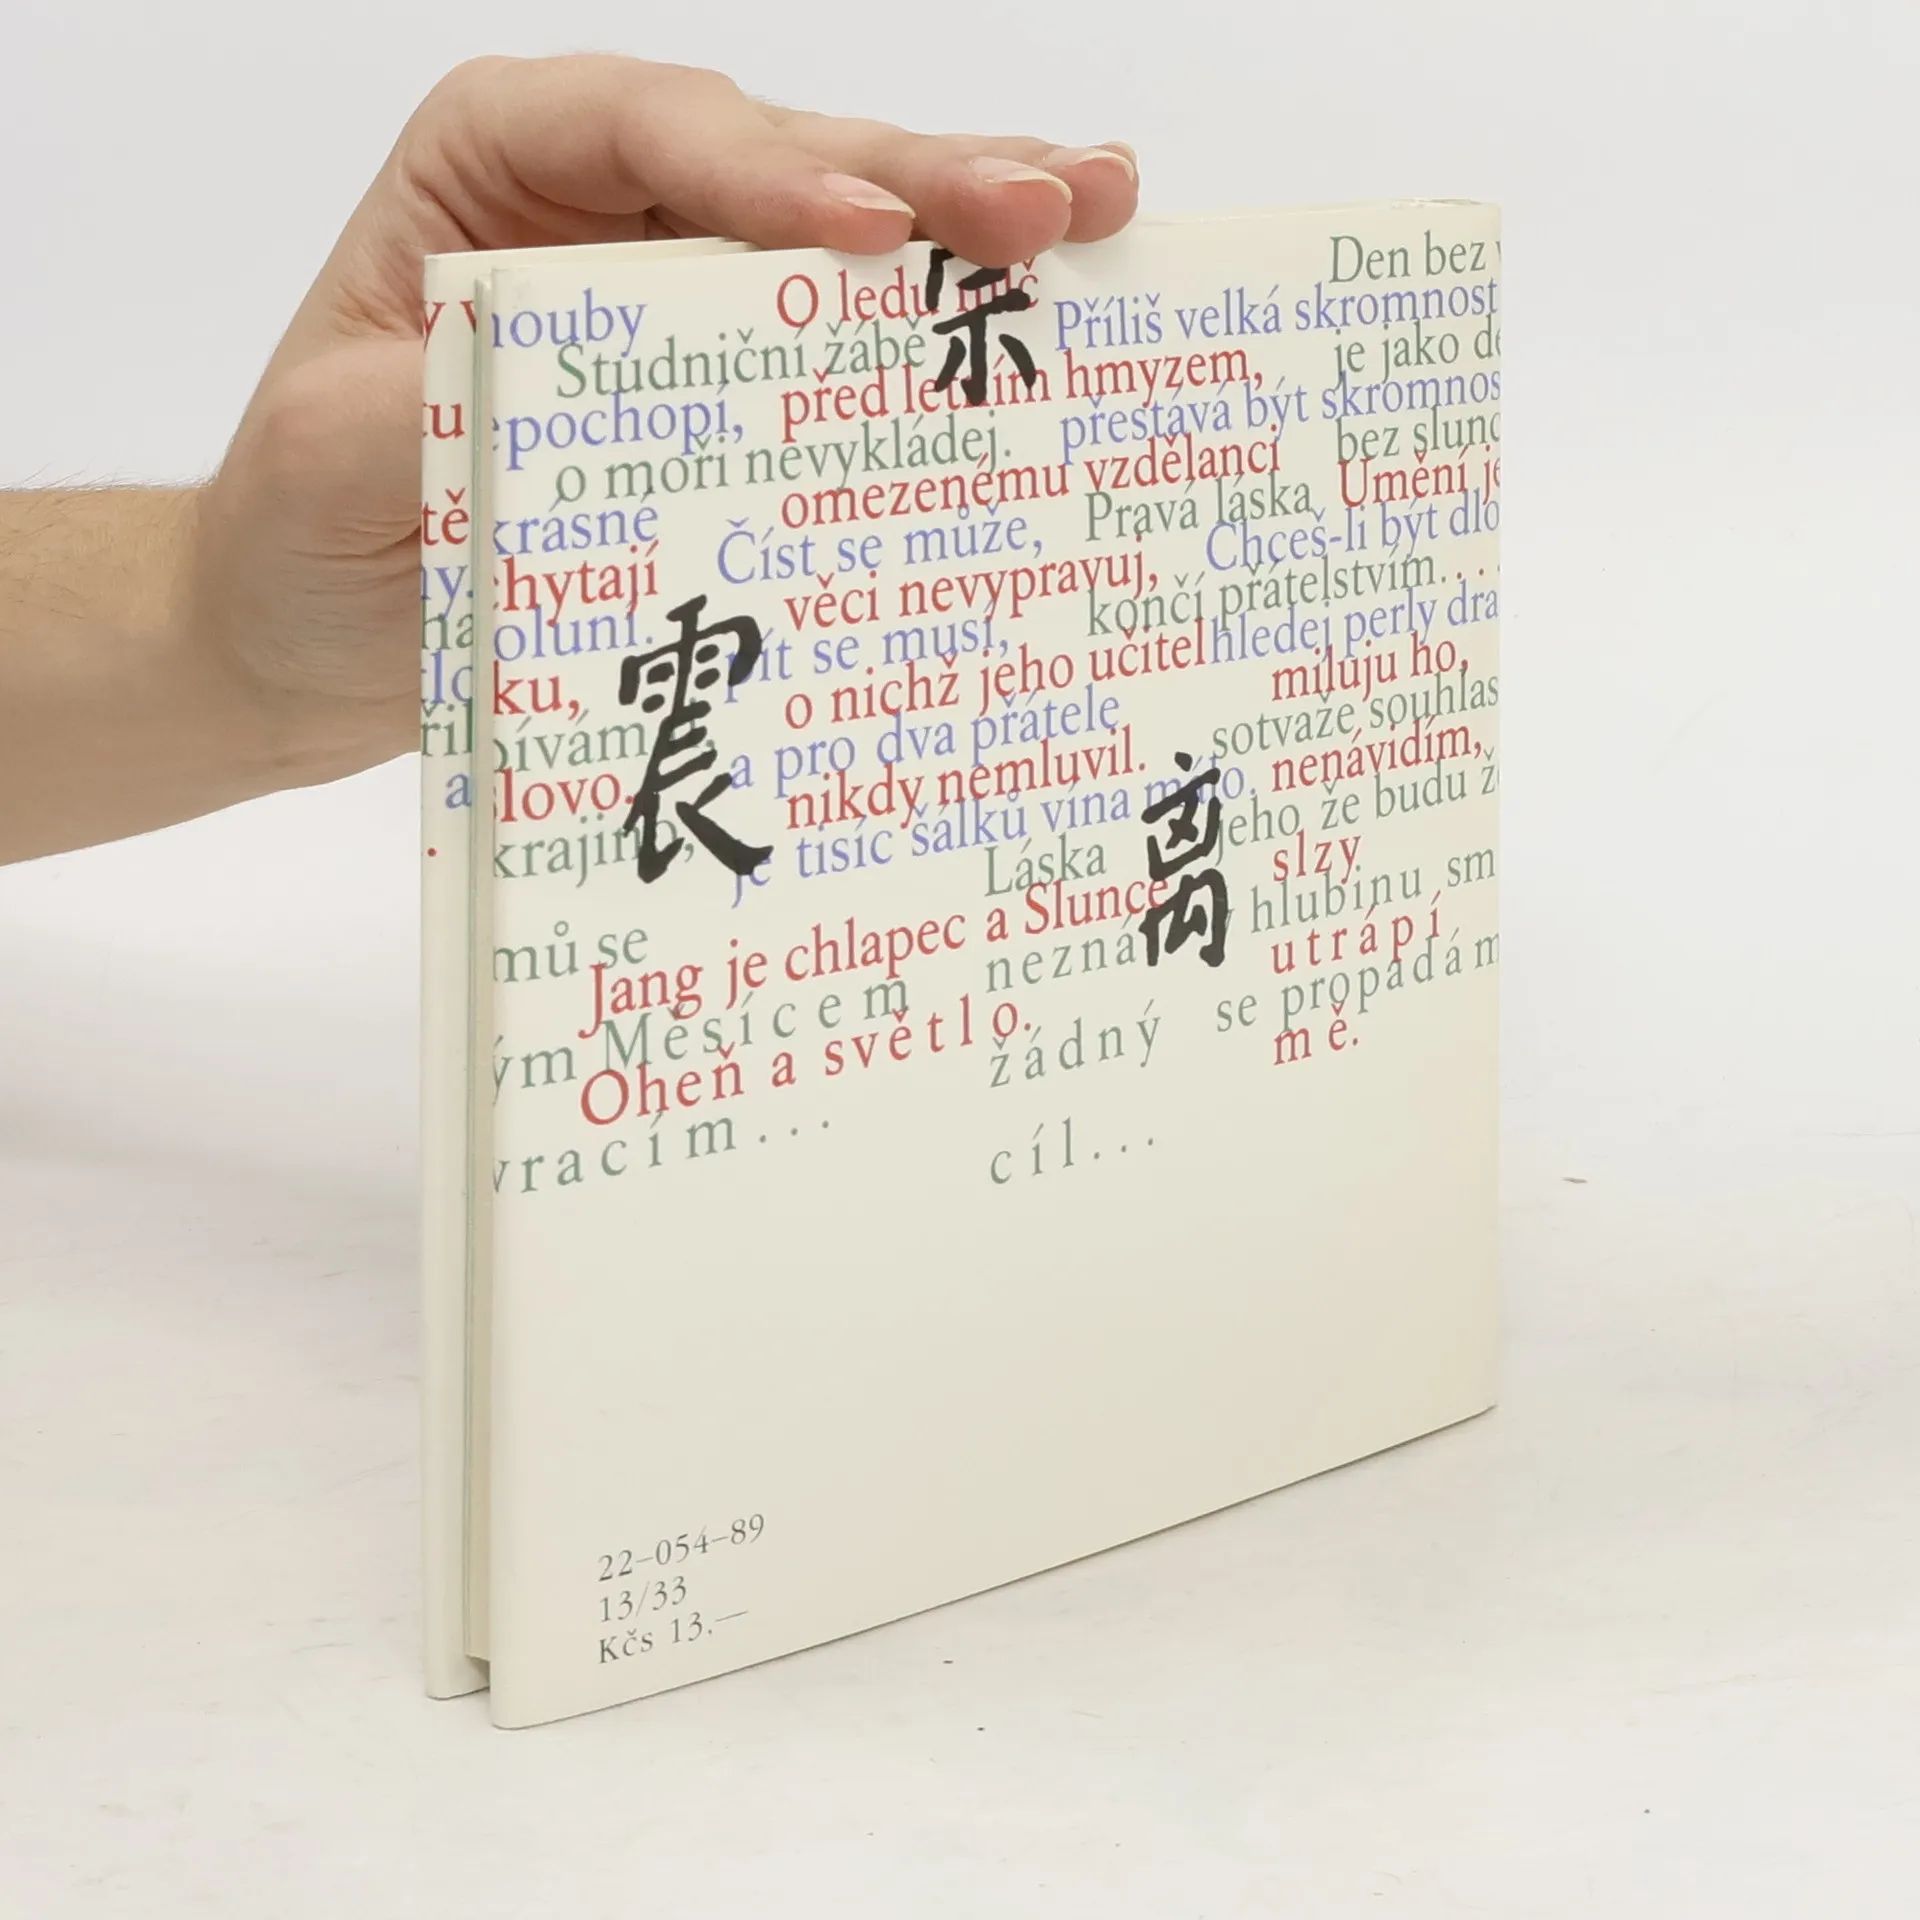 Den bez
O ledu mlč
Příliš velká skromnost
Studniční žábě
před letním hmyzem,
je jako
pochopí,
přestává být skromnos
o moři nevykládej.
bez slunc
omezenému vzdělanci
Umění je
krásné
Číst se může,
Pravá láska
Chceš-li být dlo
chytají
věci nevypravuj,
končí přátelstvím...
oluni.
pít se musí,
hledej perly dra
ku,
o nichž jeho učitel
miluju ho,
a pro dva přátele
sotvaže souhlas
slovo.
nikdy nemluvil.
nenávidím,
krajino,
je tisíc šálků vína málo.
jeho že budu ž
Láska
slzy
mů se
Jang je chlapec a Slunce
nezná
hlubinu sm
utrápí
ým Měsícem
žádný
se propadám
Oheň a světlo.
mě.
vracím...
cíl...
宗
震
离
22-054-89
13/33
Kčs 13.—